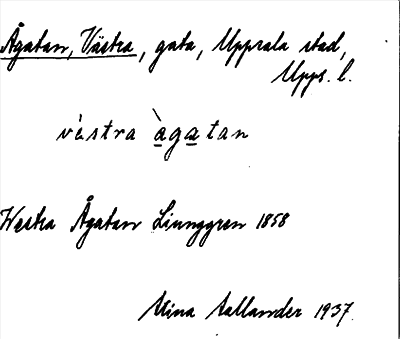 Ågatan, Västra, gata, Uppsala stad,
Upps. l.
vàstra àgatan
Westra Ågatan Ljunggren 1858
Mina Sallander 1937.